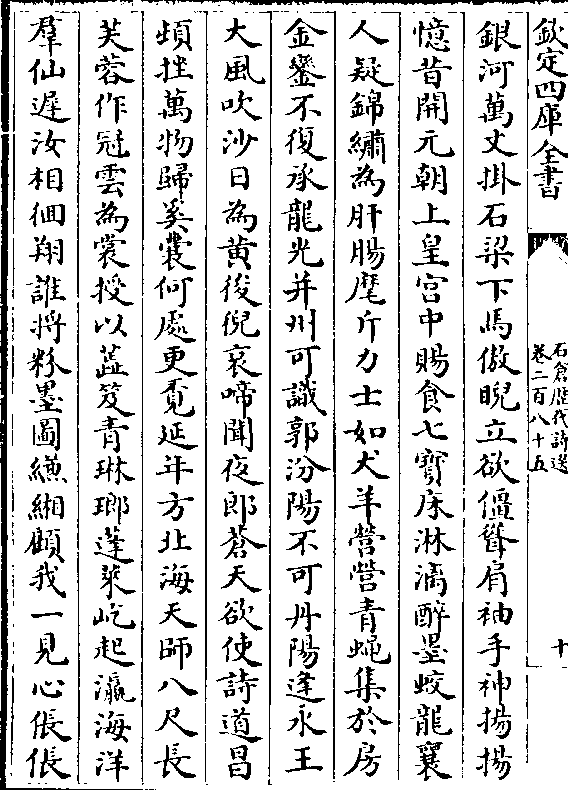 欽定四庫全書
石倉歷代詩選
卷二百八十五
十
銀河萬丈掛石梁下馬傲睨立欲僵聳肩袖手神揚揚
憶昔開元朝上皇宫中賜食七寳床淋漓醉墨蛟龍襄
人疑錦繡為肝腸麾斥力士如犬羊營營青蠅集於房
金鑾不復承龍光并州可識郭汾陽不可丹陽逢永王
大風吹沙日為黄後猊哀啼聞夜郎蒼天欲使詩道昌
頓挫萬物歸奚囊何處更覓延年方北海天師八尺長
芙蓉作冠雲為裳授以蕋笈青琳瑯蓬萊屹起瀛海洋
羣仙遲汝相徊翔誰將粉墨圖縑緗顧我一見心倀倀